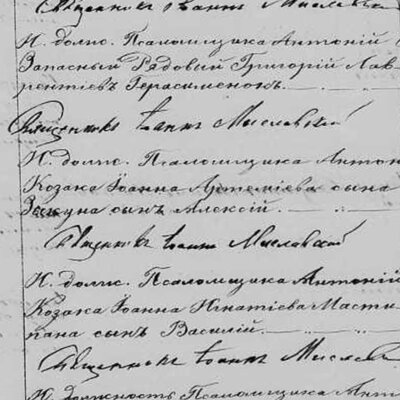 Священникъ Іоаннъ Миславскій
И. долж. Псаломщика Антоній
Запасный Рядовой Григорій Лав-
рентіевъ Герасименокъ.
Священникъ Іоаннъ Миславскій
И. долж. Псаломщика Антоній
Козака Іоанна Артеміева сына
сынъ Алексій.
Священникъ Іоаннъ Миславскій
И. долж. Псаломщика Антоній
Козака Іоанна Игнатіева Масти-
пана сынъ Василій.
Священникъ Іоаннъ Миславскій
И. Должность Псаломщика Анто